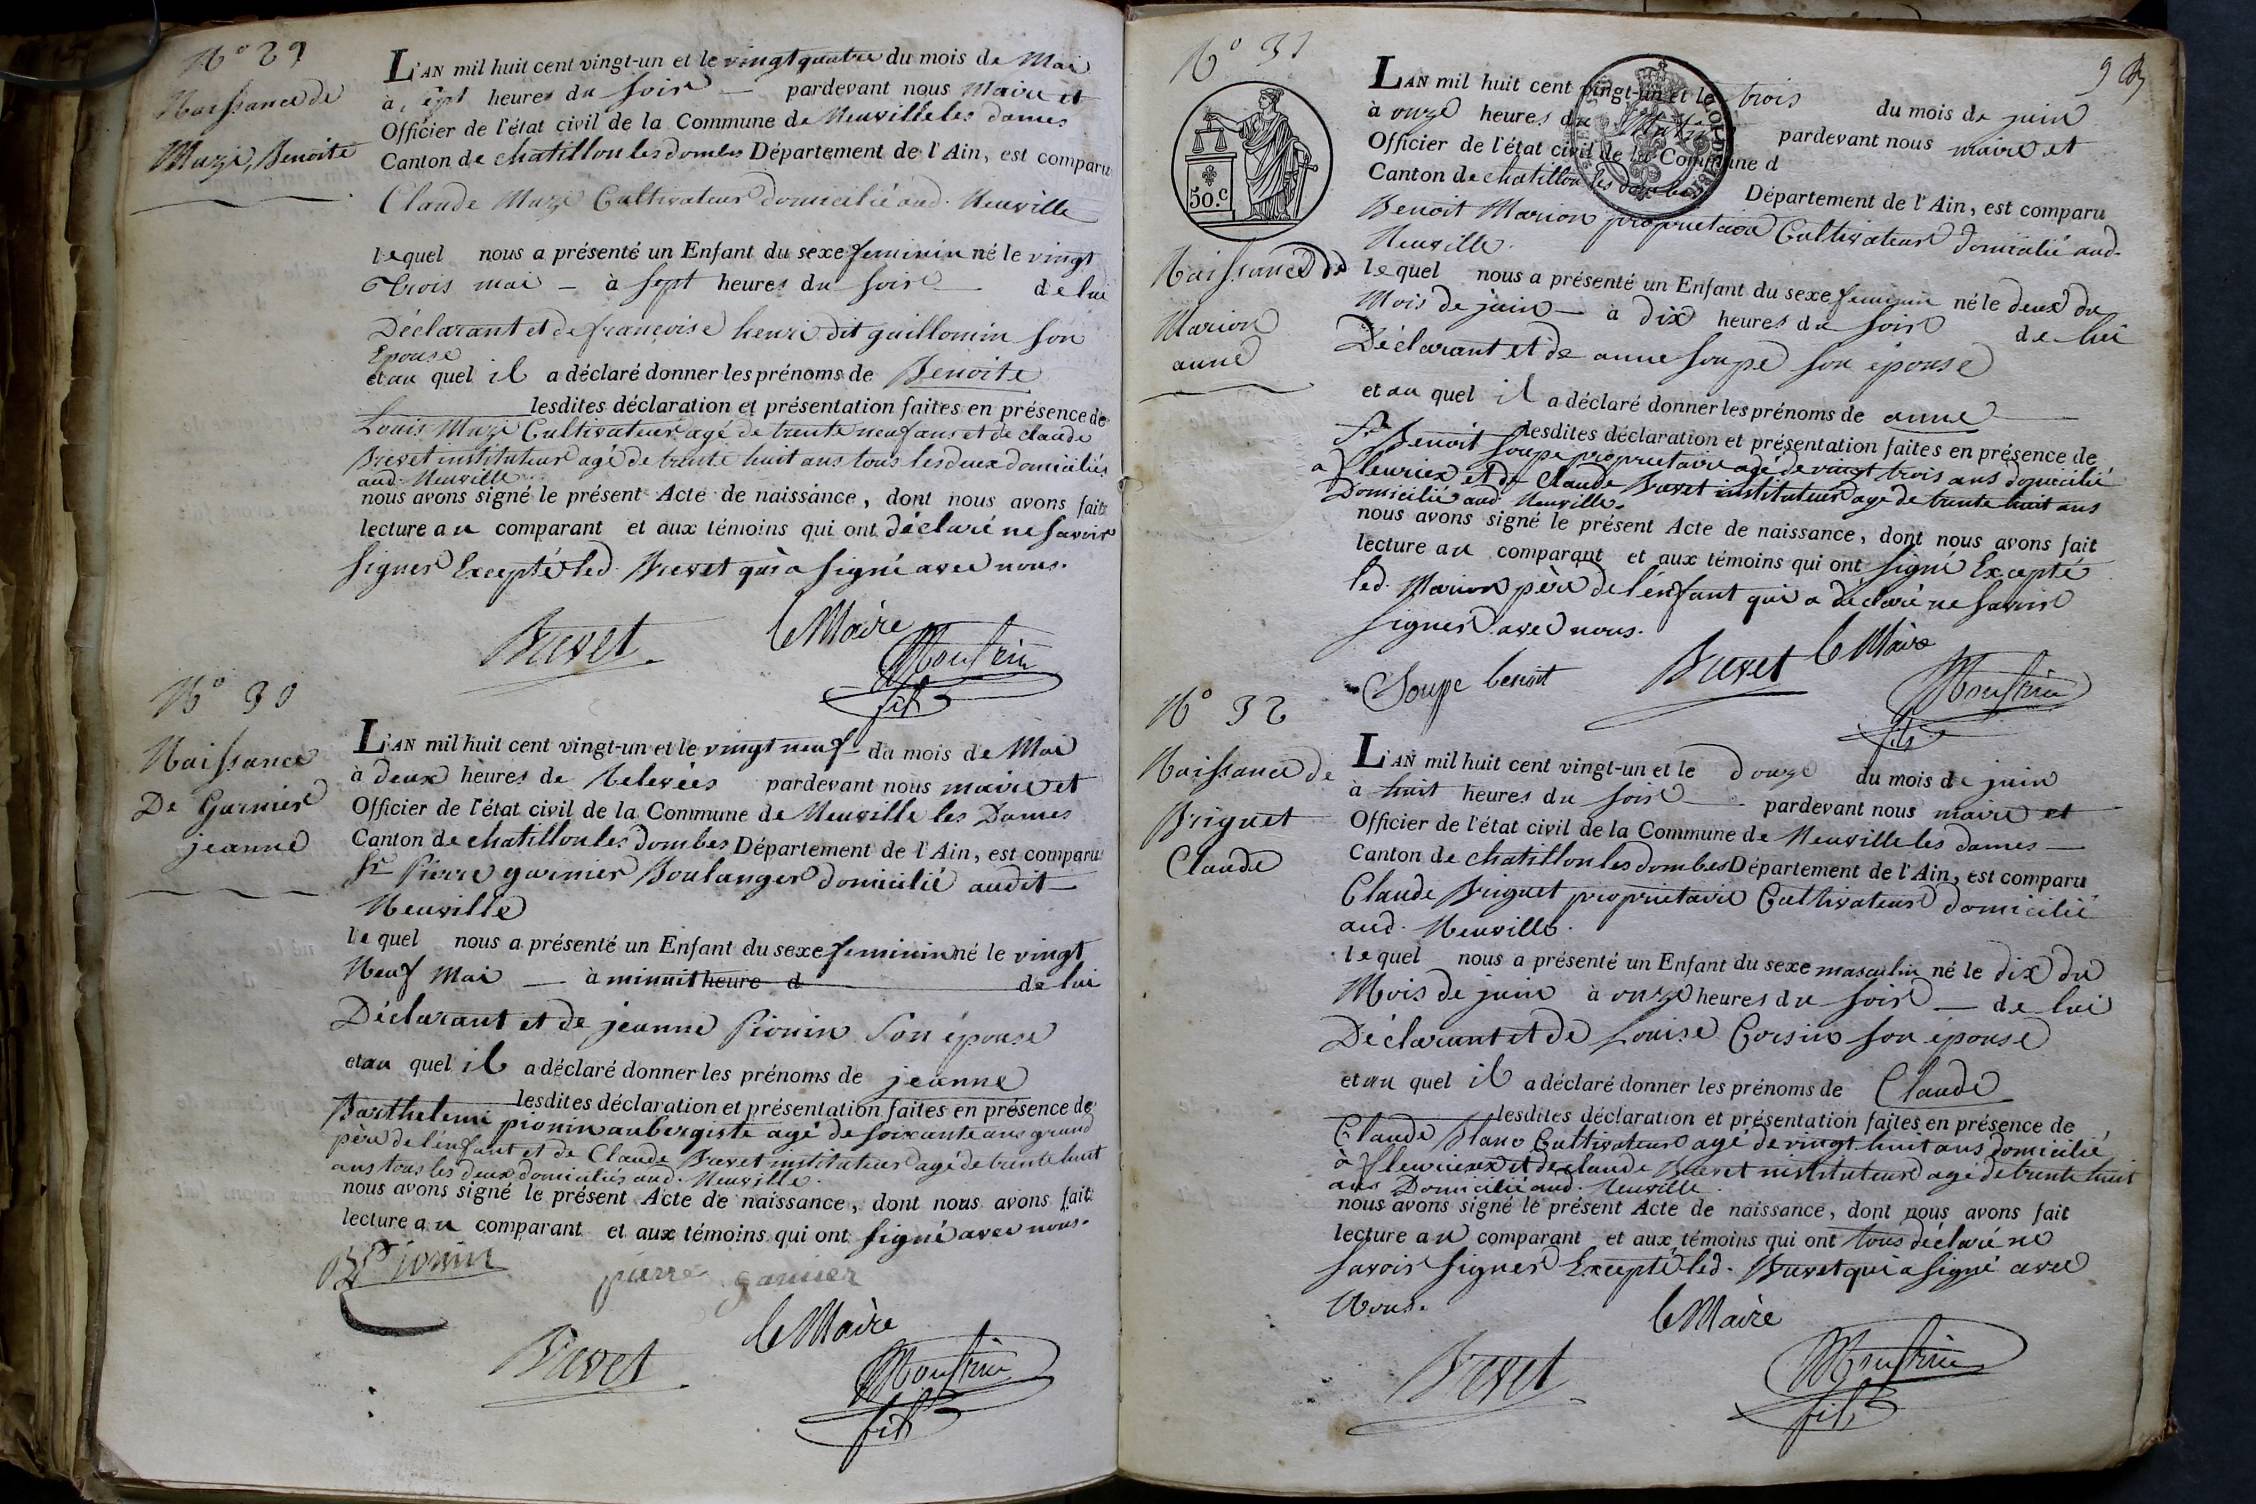 N° 29
Naissance de
Muzi, Benoite
L'AN mil huit cent vingt-un et le vingt quatre du mois de Mai
à sept heures du soir pardevant nous Maire et
Officier de l'état civil de la Commune de Neuville les dames
Canton de chatillon les dombes Département de l'Ain, est comparu
Claude Muzi Cultivateur domicilié aud. Neuville
lequel nous a présenté un Enfant du sexe feminin né le vingt
Trois mai à sept heures du soir de lui
Déclarant et de françoise henri dit guillomin son
Epouse
et au quel il a déclaré donner les prénoms de Benoite
lesdites déclaration et présentation faites en présence de
Louis Muzi Cultivateur agé de trente neuf ans et de claude
Brevet instituteur agé de trente huit ans tous les deux domiciliés
aud. Neuville
nous avons signé le présent Acte de naissance, dont nous avons fait
lecture au comparant et aux témoins qui ont déclaré ne savoir
signer Excepté led. Brevet qui a signé avec nous.
Brevet
le Maire
fils
N° 30
Naissance
De Garnier
jeanne
L'AN mil huit cent vingt-un et le vingt neuf du mois de Mai
à deux heures de Relevées pardevant nous maire et
Officier de l'état civil de la Commune de Neuville les Dames
Canton de chatillon les dombes Département de l'Ain, est comparu
Sr Pierre garnier Boulanger domicilié audit
Neuville
lequel nous a présenté un Enfant du sexe feminin né le vingt
Neuf Mai à minuit heure d de lui
Déclarant et de jeanne Pionin Son épouse
et au quel il a déclaré donner les prénoms de jeanne
lesdites déclaration et présentation faites en présence de
Barthelemi pionin aubergiste agé de soixante ans grand
père de l'enfant et de Claude Brevet instituteur agé de trente huit
ans tous les deux domiciliés aud. Neuville.
nous avons signé le présent Acte de naissance, dont nous avons fait
lecture au comparant et aux témoins qui ont signé avec nous.
pierre garnier
le Maire
Brevet
fils
N° 31
50.C
Naissance de
Marion
anne
L'AN mil huit cent vingt-un et le trois du mois de juin
à onze heures du Matin pardevant nous maire et
Officier de l'état civil de la Commune d
Canton de chatillon les dombes Département de l'Ain, est comparu
Benoit Marion proprietaire Cultivateur domicilié aud.
Neuville.
lequel nous a présenté un Enfant du sexe feminin né le deux du
Mois de juin à dix heures du soir de lui
Déclarant et de anne soupe son épouse
et au quel il a déclaré donner les prénoms de anne
lesdites déclaration et présentation faites en présence de
Sr Benoit soupe proprietaire agé de vingt trois ans domicilié
a fleuriex et de Claude Brevet instituteur agé de trente huit ans
Domicilié aud. Neuville.
nous avons signé le présent Acte de naissance, dont nous avons fait
lecture au comparant et aux témoins qui ont signé Excepté
led. Marion père de l'enfant qui a déclaré ne savoir
signer avec nous.
Soupe benoit
Brevet
le Maire
fils
N° 32
Naissance de
Briguet
Claude
L'AN mil huit cent vingt-un et le douze du mois de juin
à huit heures du soir pardevant nous maire et
Officier de l'état civil de la Commune de Neuville les dames
Canton de chatillon les dombes Département de l'Ain, est comparu
Claude Briguet proprietaire Cultivateur domicilié
aud. Neuville.
lequel nous a présenté un Enfant du sexe masculin né le dix du
Mois de juin à onze heures du soir de lui
Déclarant et de Louise Corsin son épouse
et au quel il a déclaré donner les prénoms de Claude
lesdites déclaration et présentation faites en présence de
Claude Blanc Cultivateur agé de vingt huit ans domicilié
à fleurieux et de claude Brevet instituteur agé de trente huit
ans Domicilié aud. Neuville.
nous avons signé le présent Acte de naissance, dont nous avons fait
lecture au comparant et aux témoins qui ont tous déclaré ne
savoir signer Excepté led. Brevet qui a signé avec
Nous.
le Maire
Brevet
fils